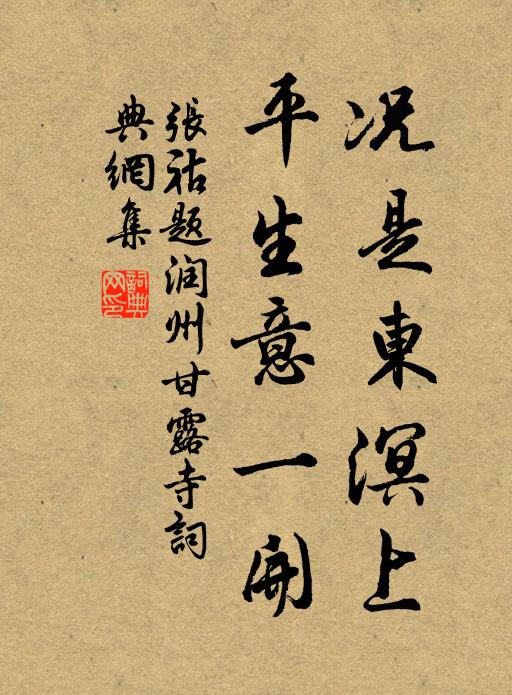 况是東溟上
平生意一開
張祜題润州甘露寺詞
典網集
詞典
网印